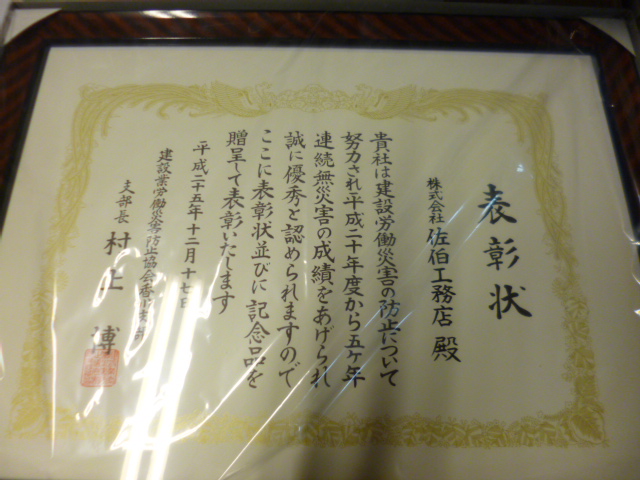 表彰状
株式会社 佐伯工務店 殿
貴社は建設労働災害の防止について
努力され平成二十年度から五ヶ年
連続無災害の成績をあげられ
誠に優秀と認められますので
ここに表彰状並びに記念品を
贈呈して表彰いたします
平成二十五年十二月十七日
建設業労働災害防止協会香川支部
支部長 村上 博